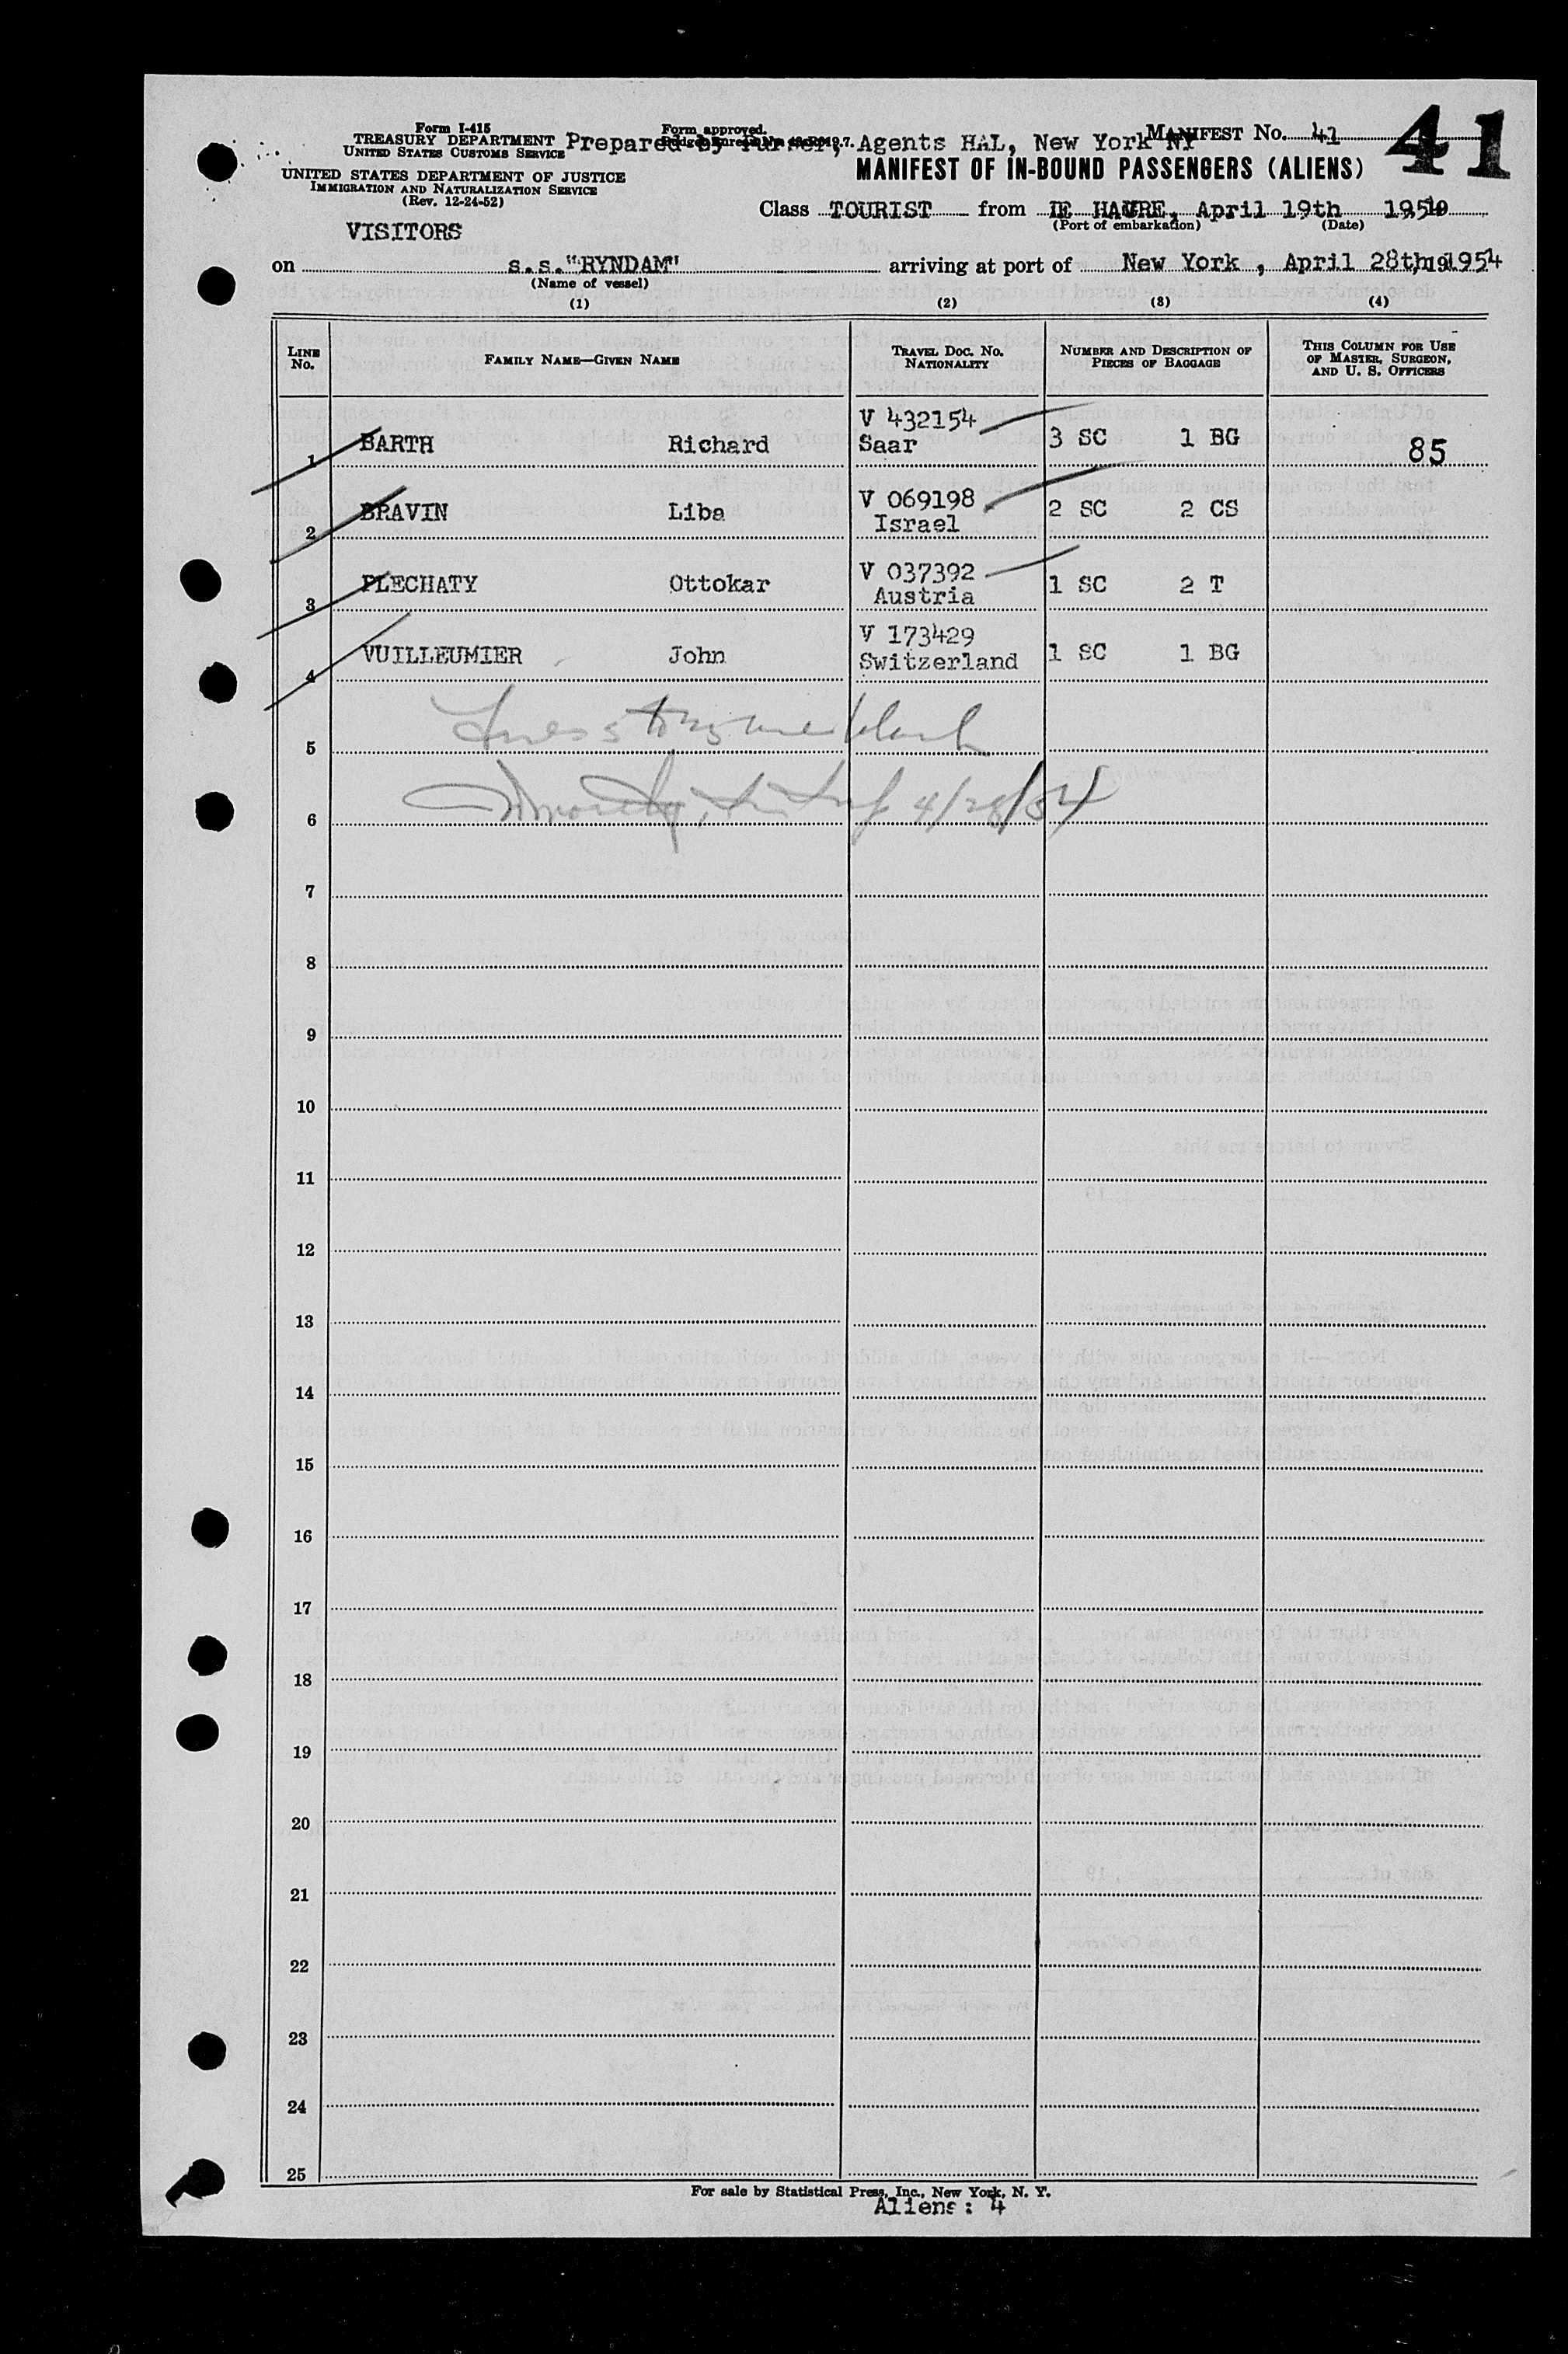 Form I-415
TREASURY DEPARTMENT
UNITED STATES CUSTOMS SERVICE
UNITED STATES DEPARTMENT OF JUSTICE
IMMIGRATION AND NATURALIZATION SERVICE
(Rev. 12-24-52)
Form approved.
Prepared by Agents HAL, New York NY
MANIFEST No. 41
41
MANIFEST OF IN-BOUND PASSENGERS (ALIENS)
Class TOURIST from LE HAVRE, April 19th 1954
(Port of embarkation) (Date)
VISITORS
on s.s."RYNDAM" arriving at port of New York, April 28th, 1954
(Name of vessel)
(1) (2) (3) (4)
LINE No. FAMILY NAME—GIVEN NAME TRAVEL DOC. No. NATIONALITY NUMBER AND DESCRIPTION OF PIECES OF BAGGAGE THIS COLUMN FOR USE OF MASTER, SURGEON, AND U. S. OFFICERS
1 BARTH Richard V 432154 Saar 3 SC 1 BG 85
2 BRAVIN Liba V 069198 Israel 2 SC 2 CS
3 PLECHATY Ottokar V 037392 Austria 1 SC 2 T
4 VUILLEUMIER John V 173429 Switzerland 1 SC 1 BG
5
6 4/28/54
7
8
9
10
11
12
13
14
15
16
17
18
19
20
21
22
23
24
25
For sale by Statistical Press, Inc., New York, N. Y.
Aliens: 4